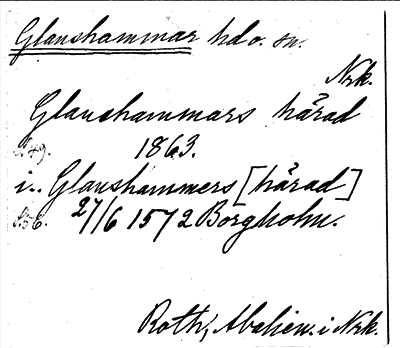 Glanshammar hd o. sn.
Nrk.
Glanshammars härad
s. 49. 1863.
i.. Glanshammers [härad]
s. 56. 27/6 1572 Borgholm.
Roth, i Nrk.